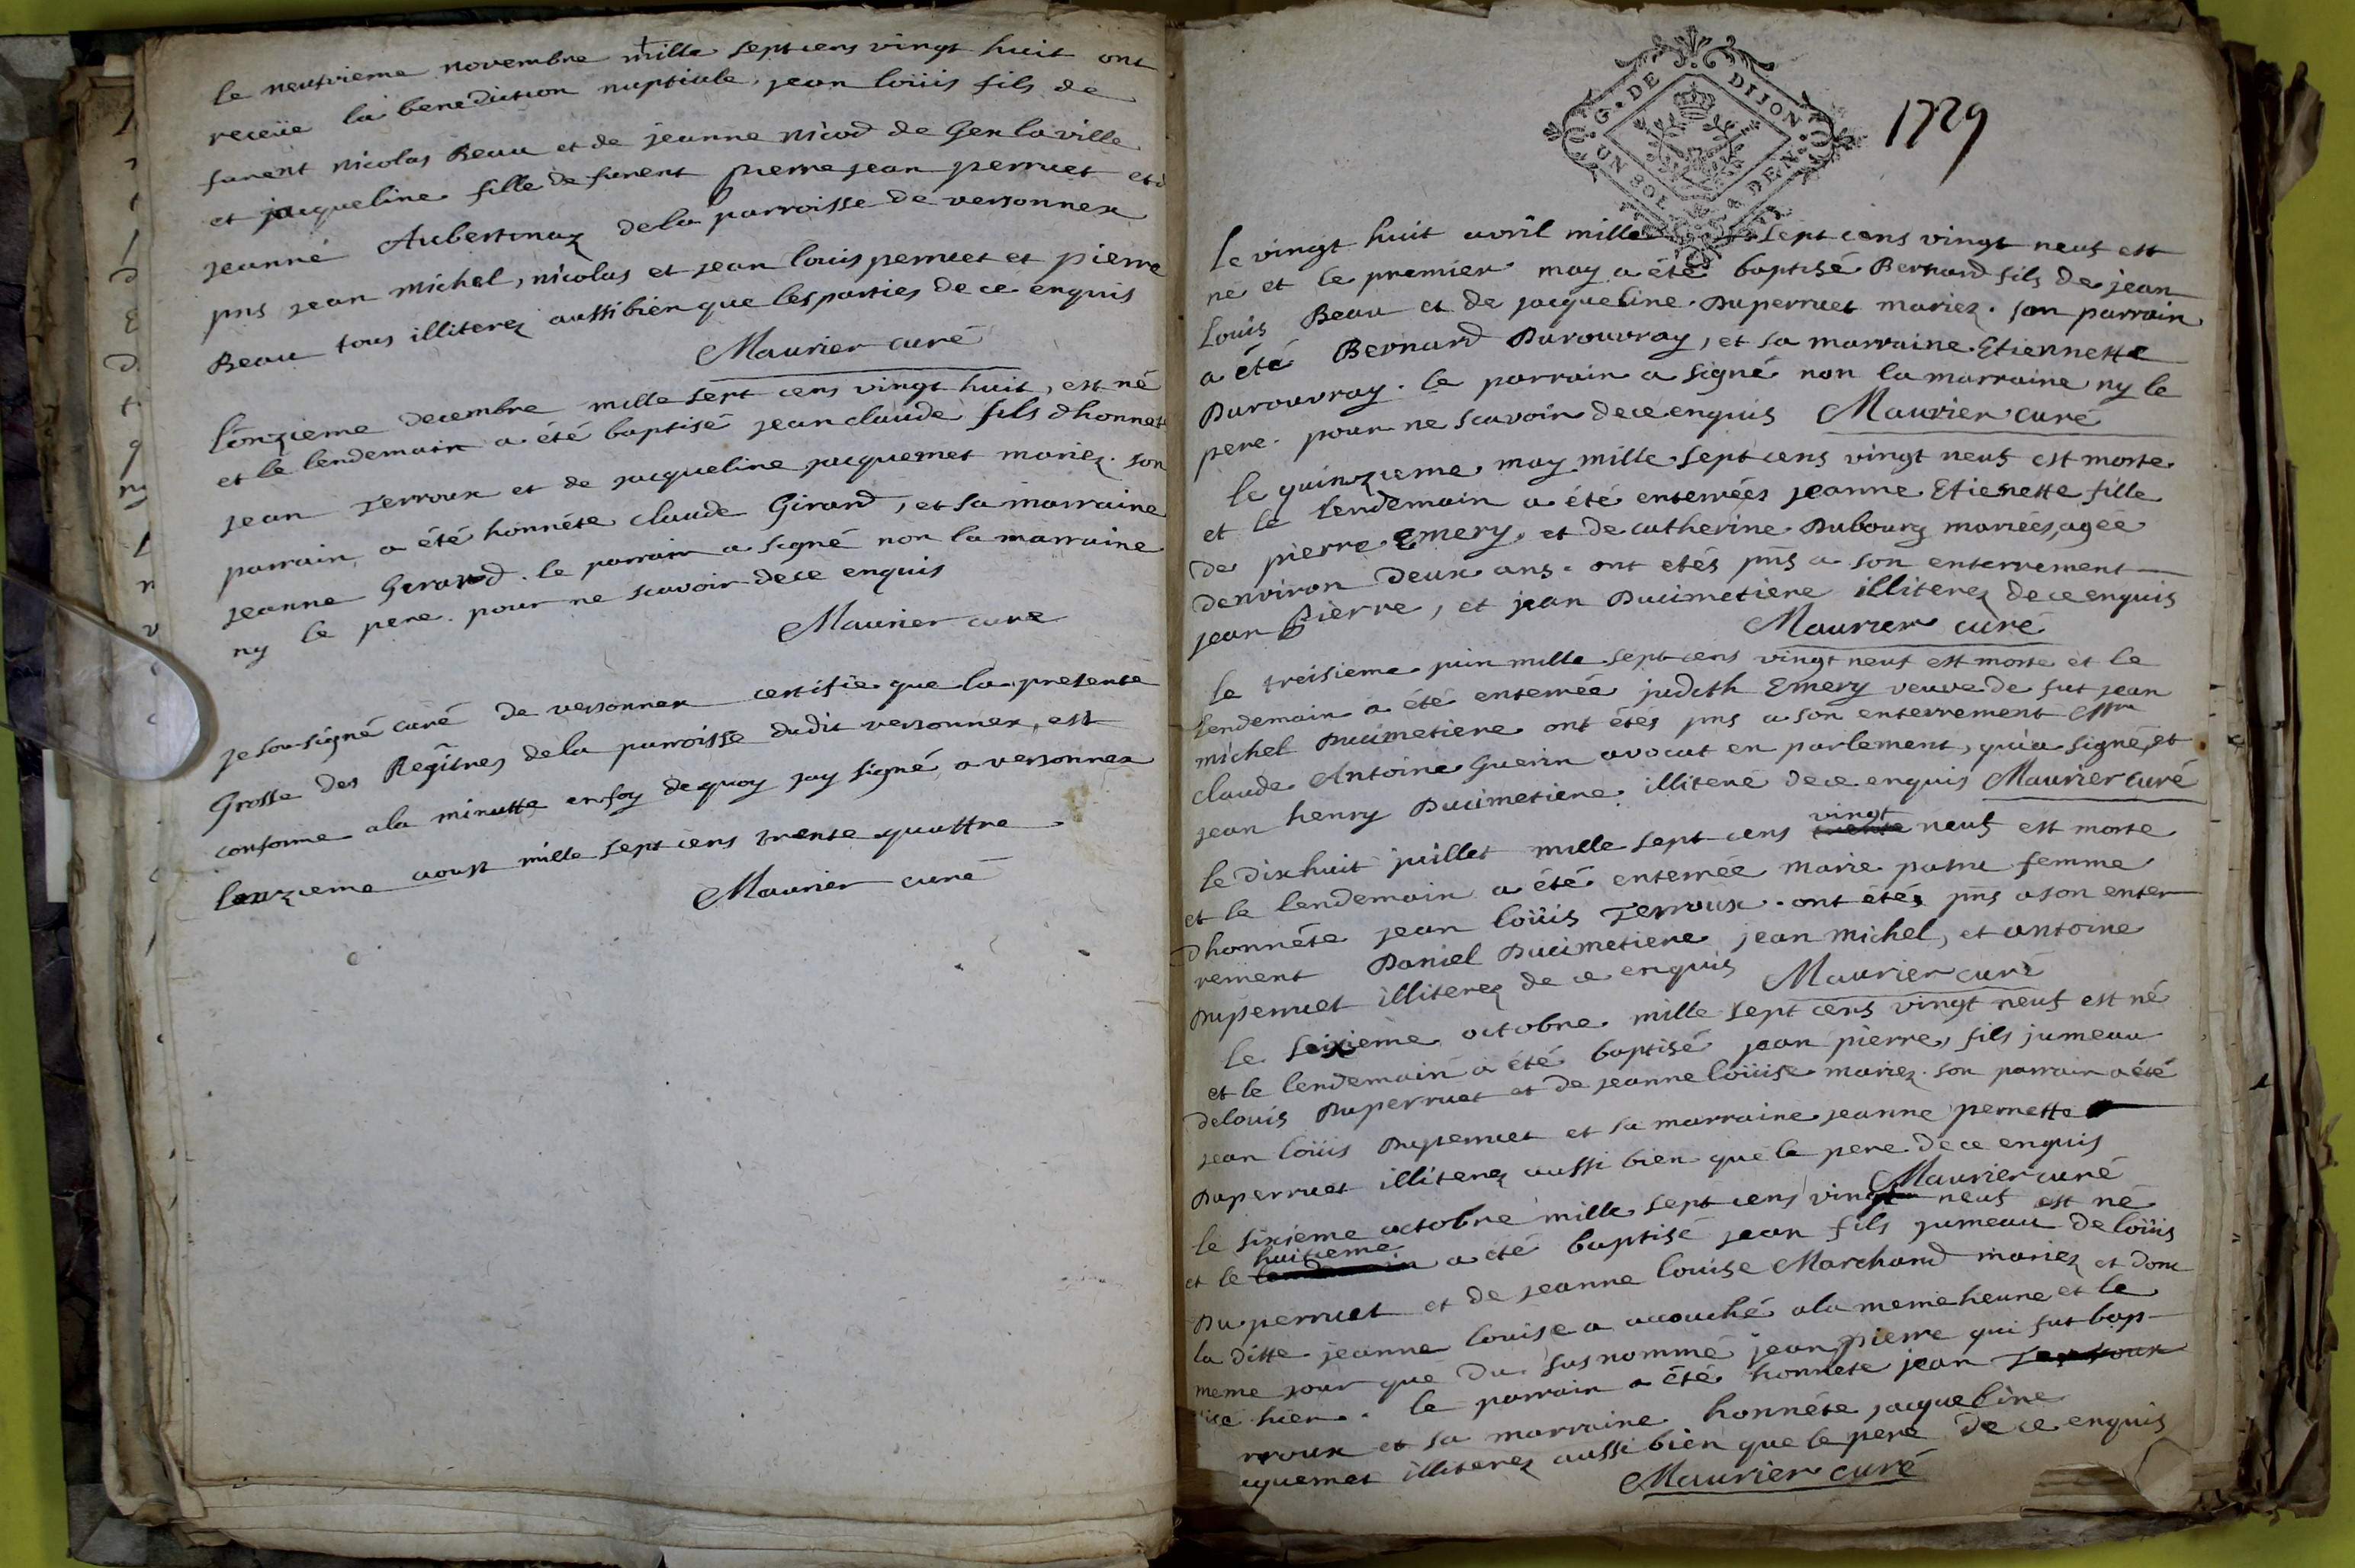 le neufvieme novembre mille sept cens vingt huit ont
receüe la benediction nuptiale, jean loüis fils de
furent nicolas Beau et de jeanne nicod de Gex la ville
et jacqueline fille de furent pierre jean perruet et d
jeanne Aubertinaz de la parroisse de versonnex
pns jean michel, nicolas et jean louis perruet et pierre
Beau tous illiterez aussi bien que les parties de ce enquis
Maurier curé
l'onzieme decembre mille sept cens vingt huit, est né
et le lendemain a été baptisé jean claude fils d honnete
jean Terroux et de jacqueline jacquemet mariez. son
parrain, a été honnéte claude Girard, et sa marraine
jeanne Girard. le parrain a signé non la marraine
ny le pere. pour ne scavoir de ce enquis
Maurier curé
je sousigné curé de versonnex certifie que la presente
Grosse des Regîtres de la parroisse dudit versonnex, est
conforme a la minutte en foy de quoy jay signé a versonnex
lonzieme aoust mille sept cens trente quattre
Maurier curé
G. DE DIJON
UN SOL 4 DEN.
1729
le vingt huit avril mille sept cens vingt neuf est
né et le premier may a été baptisé Bernard fils de jean
Louis Beau et de jacqueline Duperruet mariez. son parrain
a été Bernard Durouvray, et sa marraine Etiennette
Durouvray. le parrain a signé non la marraine ny le
pere. pour ne scavoir de ce enquis Maurier curé
le quinzieme may mille sept cens vingt neuf est morte
et le lendemain a été enterrées jeanne Etienette fille
de pierre Emery, et de catherine Dubourg mariées, agée
denviron deux ans. ont etés pns a son enterrement
jean pierre, et jean Ducimetiere illiterez de ce enquis
Maurier curé
le treisieme juin mille sept cens vingt neuf est morte et le
lendemain a été enterrée judith Emery veuve de fut jean
michel Ducimetiere ont étés pns a son enterrement
claude Antoine Guerin avocat en parlement, qui a signé, et
jean henry Ducimetiere illiteré de ce enquis Maurier curé
le dixhuit juillet mille sept cens vingt neuf est morte
et le lendemain a été enterrée marie femme
d honnéte jean loüis Terroux. ont étés pns a son enter
rement Daniel Ducimetiere jean michel, et antoine
Duperruet illiterez de ce enquis Maurier curé
le sixieme octobre mille sept cens vingt neuf est né
et le lendemain a été baptisé jean pierre, fils jumeau
de louis Duperruet et de jeanne loüise mariez. son parrain a été
jean loüis Duperruet et sa marraine jeanne pernette
Duperruet illiterez aussi bien que le pere de ce enquis
Maurier curé
le sixieme octobre mille sept cens vingt neuf est né
et le huitieme a été baptisé jean fils jumeau de loüis
Duperruet et de jeanne louise Marchand mariez et dont
la ditte jeanne louise a accouché a la meme heure et le
meme jour que du susnommé jean pierre qui fut bap-
tisé hier. le parrain a été honnete jean
rroux et sa marraine honnéte jacqueline
cquemet illiterez aussi bien que le pere de ce enquis
Maurier curé